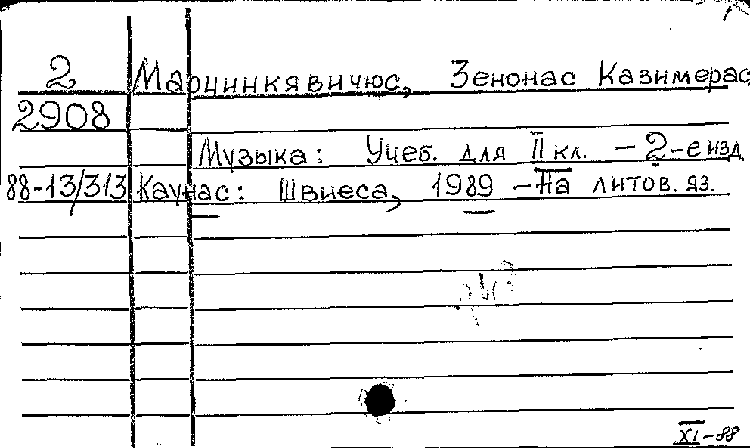 2 Марцинкявичюс, Зенонас Казимерас
2908
Музыка: Учеб. для II кл. - 2-е изд
88-13/313 Каунас: Швиеса, 1989 - На литов. яз.
XI-88